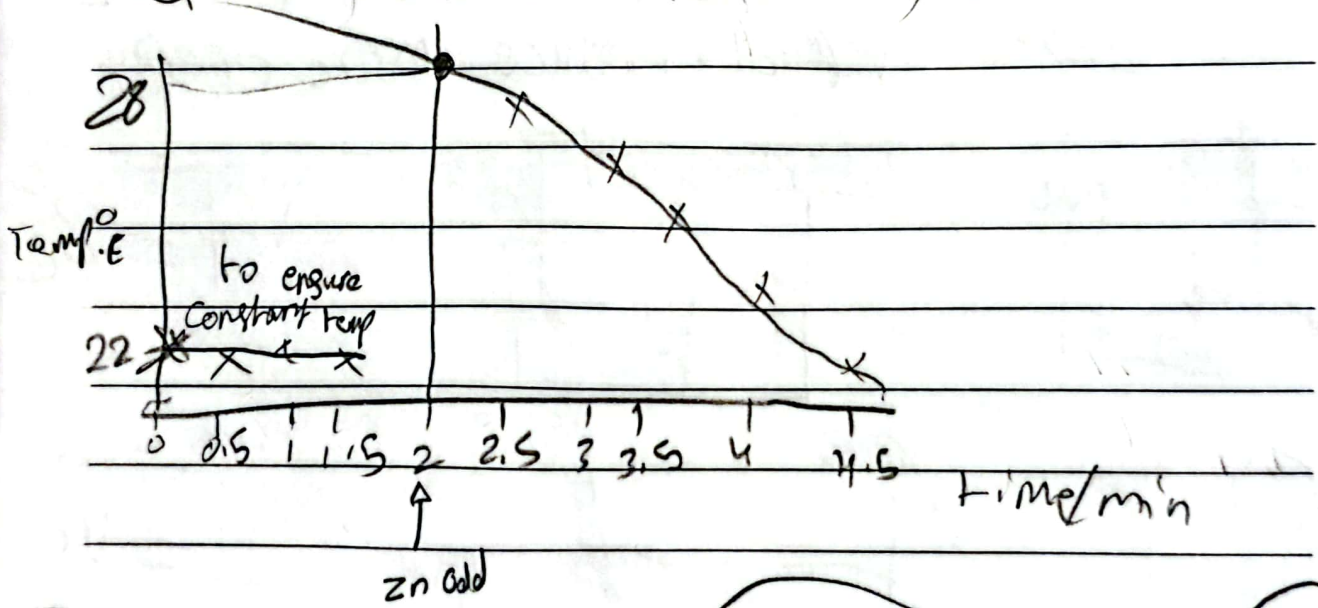 28
Temp.°C
to ensure
constant temp
22
0 0.5 1 1.5 2 2.5 3 3.5 4 4.5
time/min
zn add